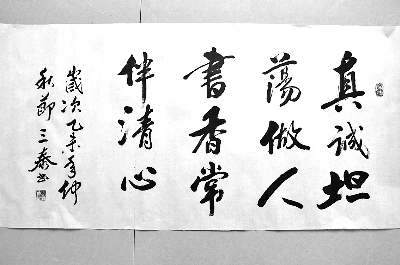 真誠坦
蕩做人
書香常
伴清心
歲次乙未年仲
秋節三泰书